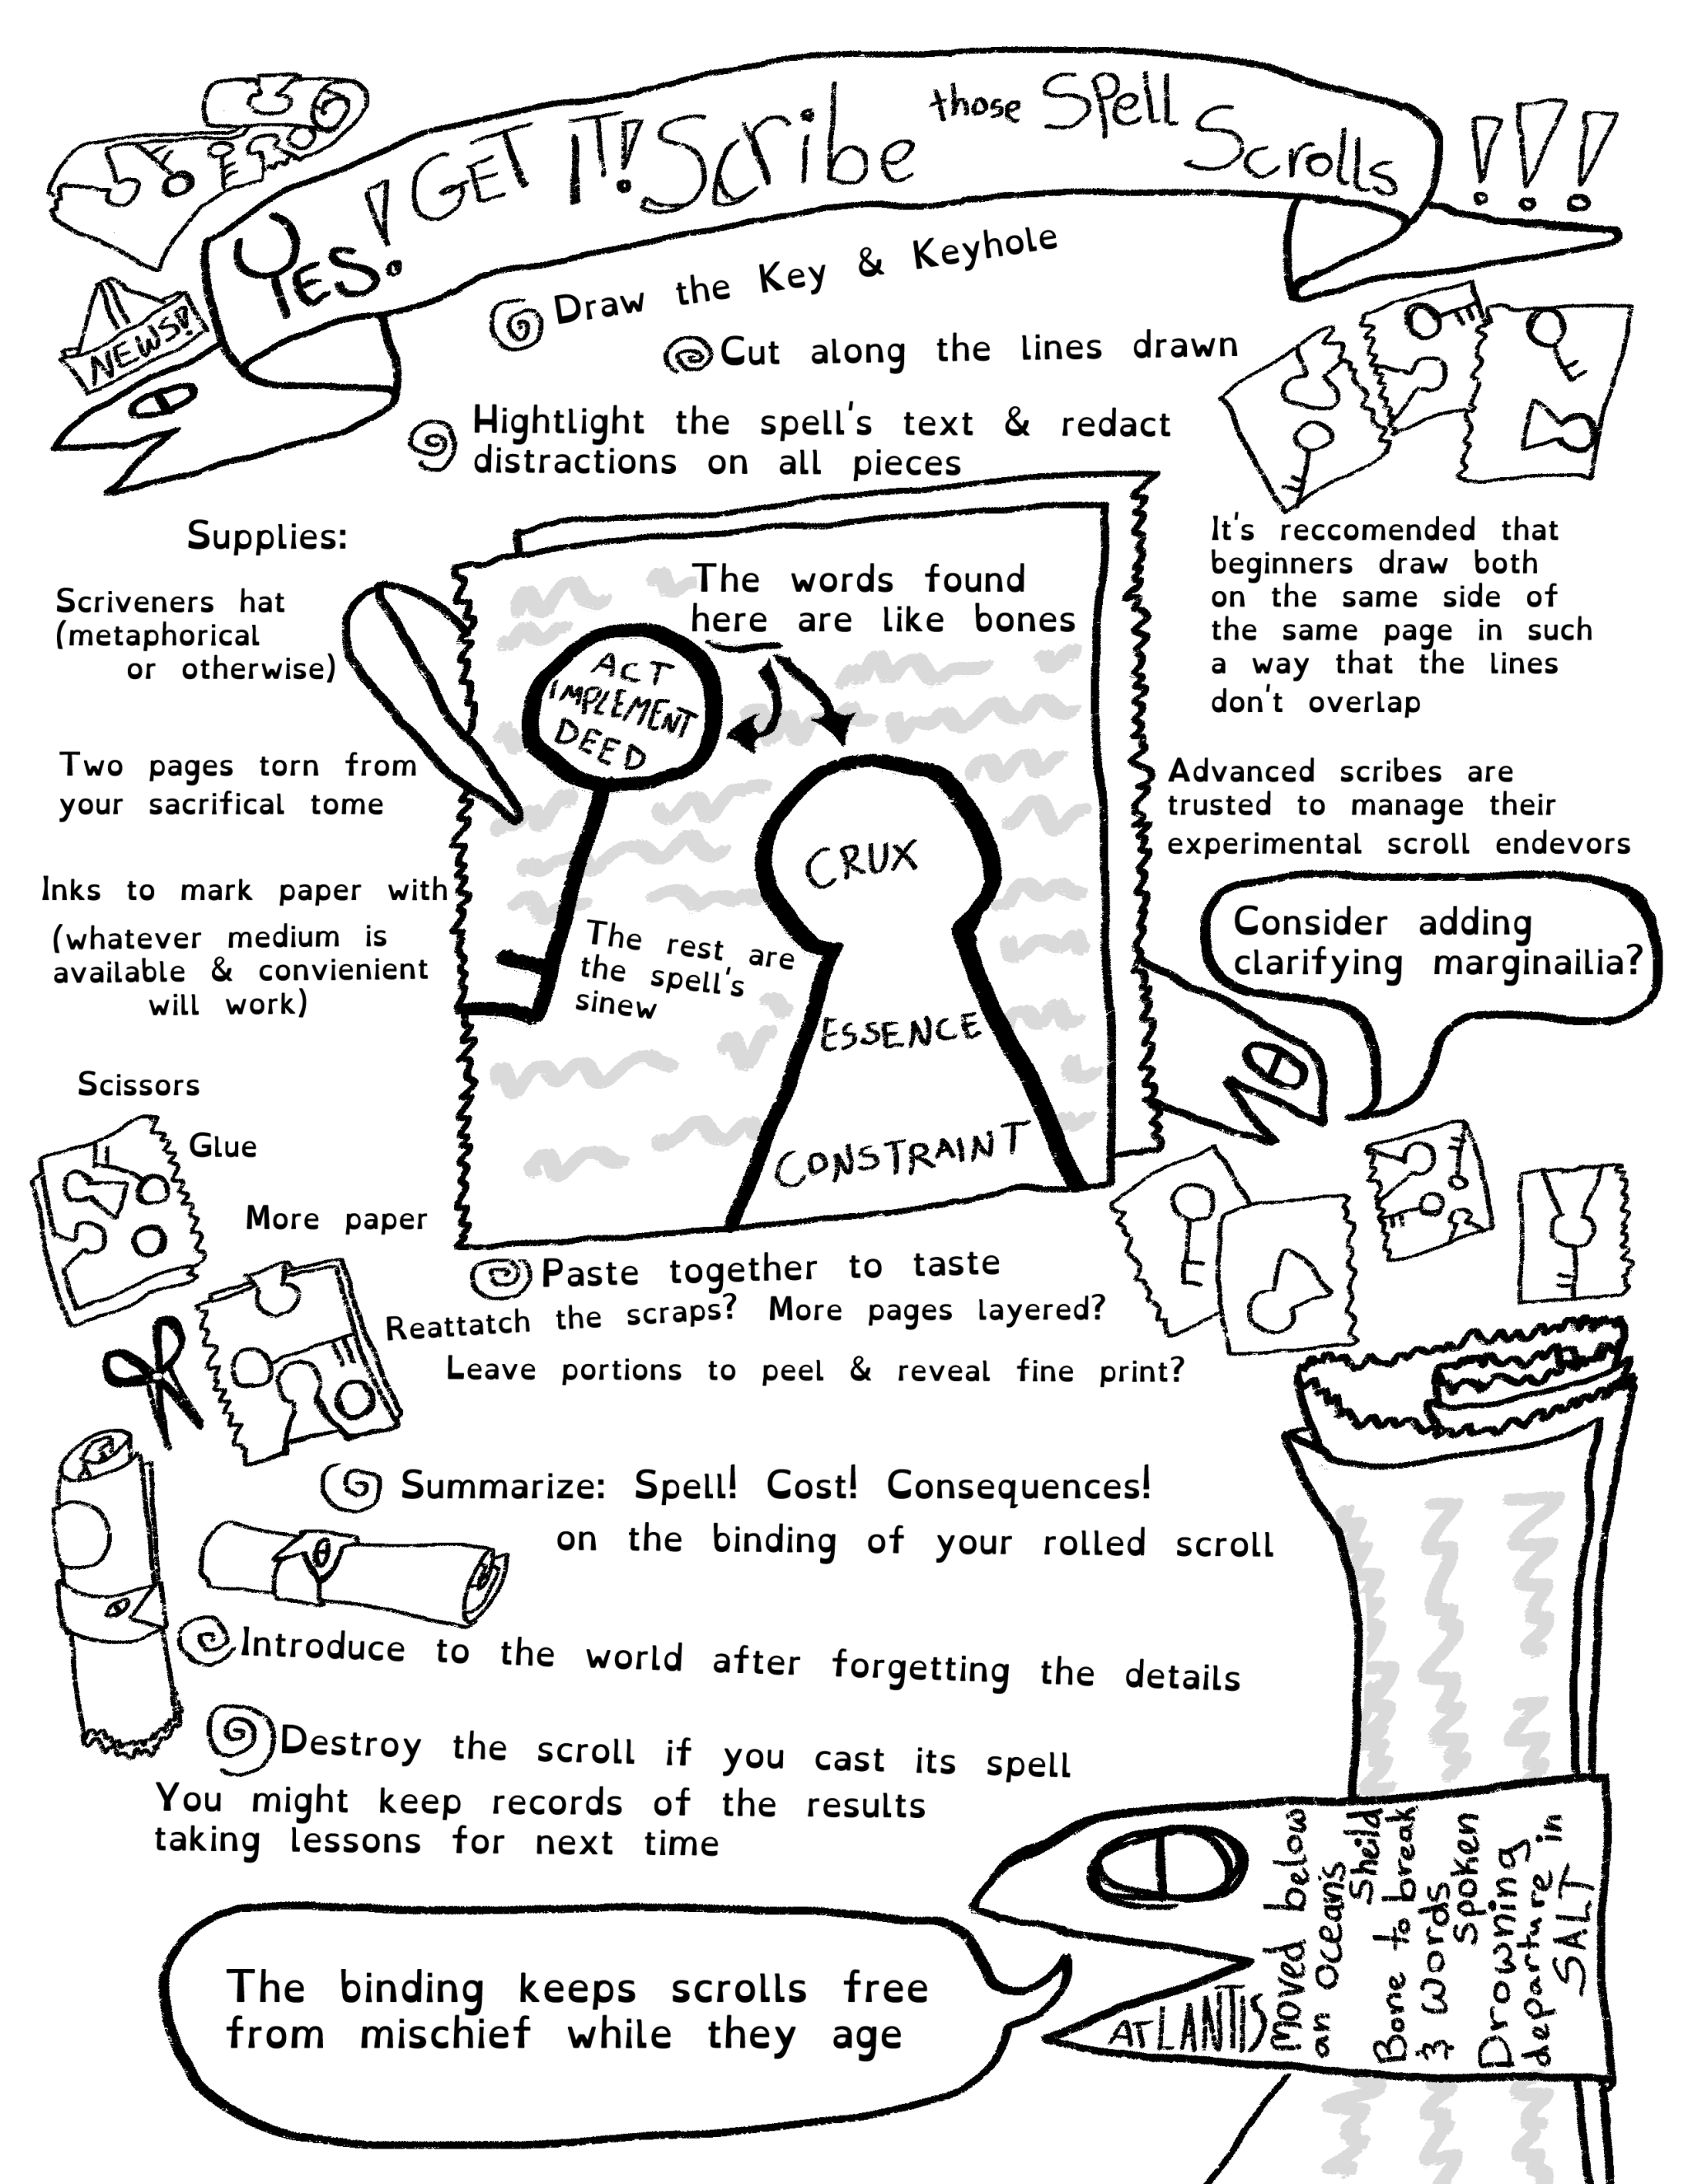 YES! GET IT! Scribe those Spell Scrolls !!!
NEWS!
Draw the Key & Keyhole
Cut along the lines drawn
Hightlight the spell's text & redact
distractions on all pieces
Supplies:
Scriveners hat
(metaphorical
or otherwise)
Two pages torn from
your sacrifical tome
Inks to mark paper with
(whatever medium is
available & convienient
will work)
Scissors
Glue
More paper
The words found
here are like bones
ACT
IMPLEMENT
DEED
CRUX
The rest are
the spell's
sinew
ESSENCE
CONSTRAINT
It's reccomended that
beginners draw both
on the same side of
the same page in such
a way that the lines
don't overlap
Advanced scribes are
trusted to manage their
experimental scroll endevors
Consider adding
clarifying marginailia?
Paste together to taste
Reattatch the scraps? More pages layered?
Leave portions to peel & reveal fine print?
Summarize: Spell! Cost! Consequences!
on the binding of your rolled scroll
Introduce to the world after forgetting the details
Destroy the scroll if you cast its spell
You might keep records of the results
taking lessons for next time
The binding keeps scrolls free
from mischief while they age
ATLANTIS
Moved below
an oceans
Sheild
Bone to break
& words
spoken
Drowning
departure in
SALT